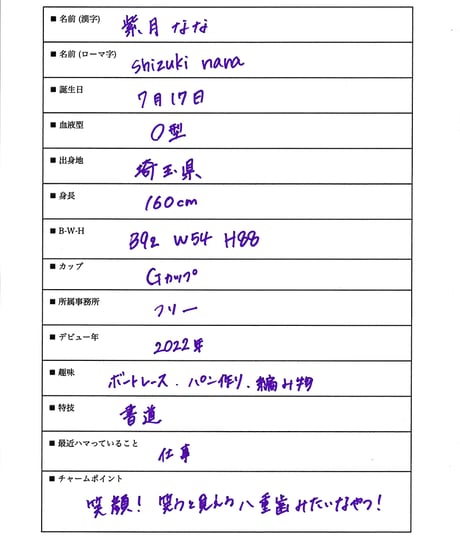 ■ 名前 (漢字)
紫月 なな
■ 名前 (ローマ字)
shizuki nana
■ 誕生日
7月17日
■ 血液型
O型
■ 出身地
埼玉県
■ 身長
160cm
■ B-W-H
B92 W54 H88
■ カップ
Gカップ
■ 所属事務所
フリー
■ デビュー年
2022年
■ 趣味
ボートレース . パン作り . 編み物
■ 特技
書道
■ 最近ハマっていること
仕事
■ チャームポイント
笑顔! 笑うと見える八重歯みたいなやつ!